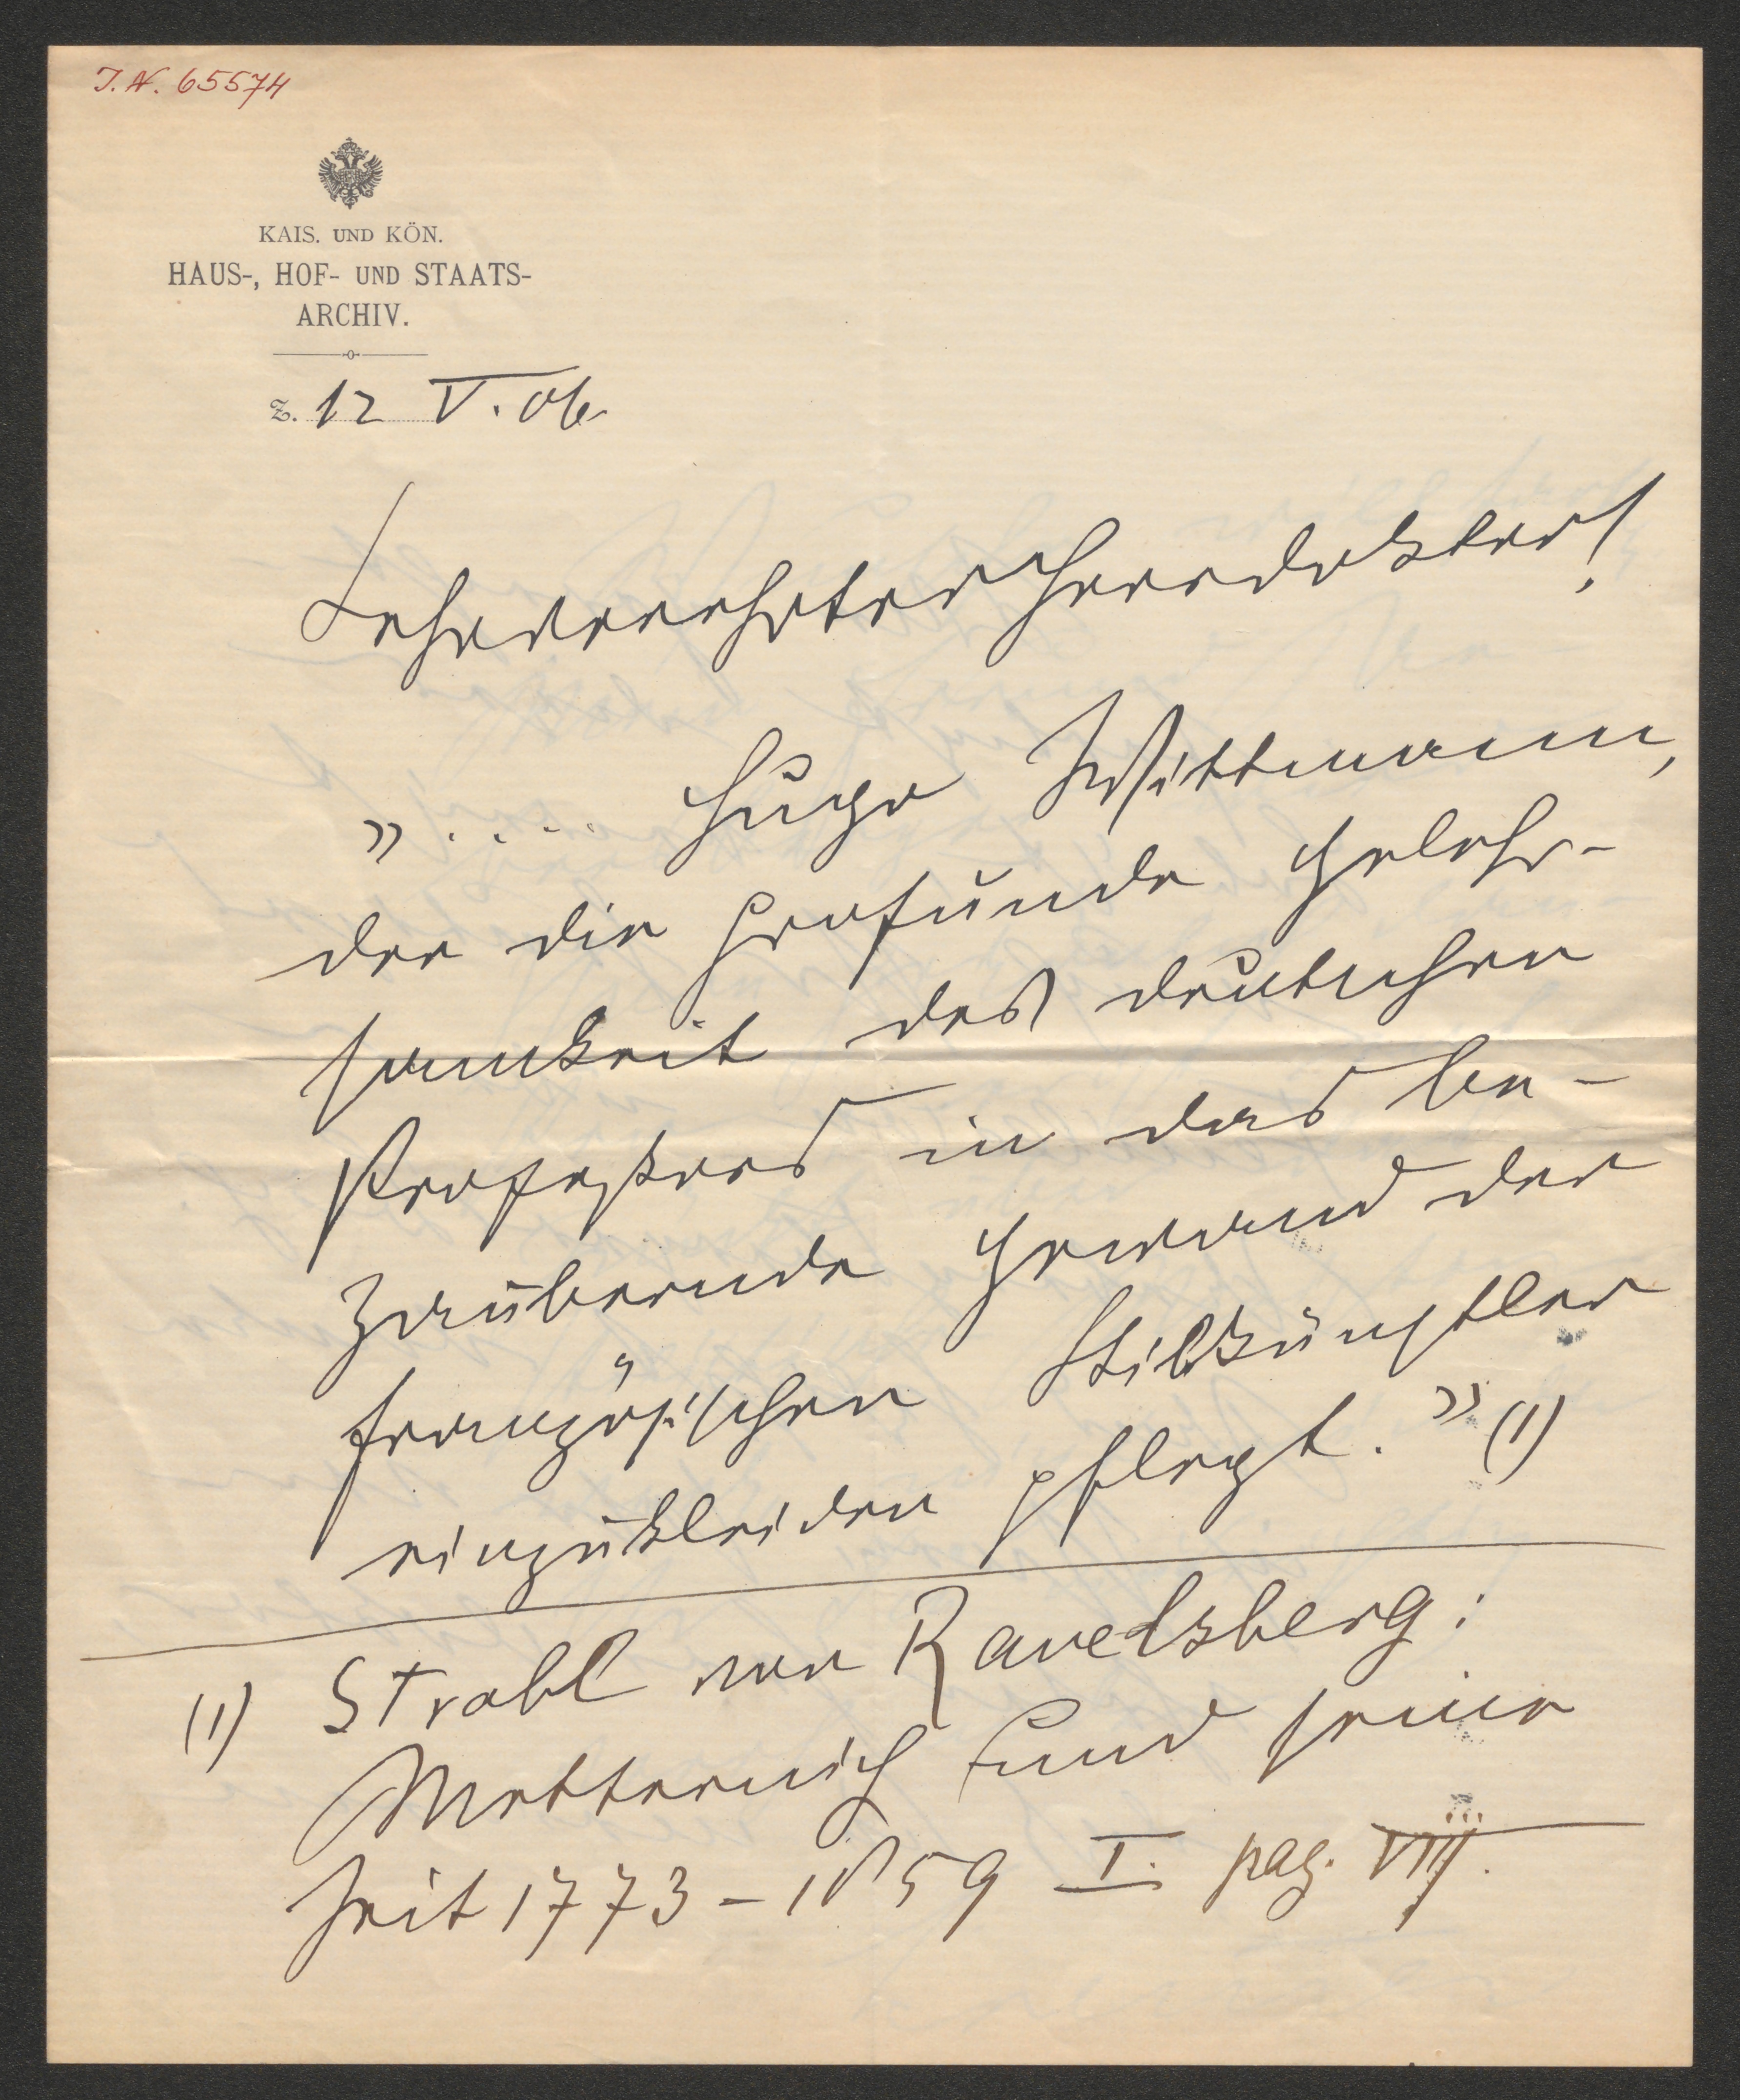 I. N. 65574
KAIS. UND KÖN.
HAUS-, HOF- UND STAATS-
ARCHIV.
Z. 12 V. 06.
Sehrverehrter Herrdoktor!
" . . . . Hugo Wittmann,
der die profunde Gelehr-
samkeit des deutschen
Professors in das be-
zaubernde Gewand der
französischen Stilkünstler
einzukleiden pflegt. " (1)
(1) Strobl von Ravelsberg:
Metternich und seine
Zeit 1773 - 1859 I. pag. VIIj.